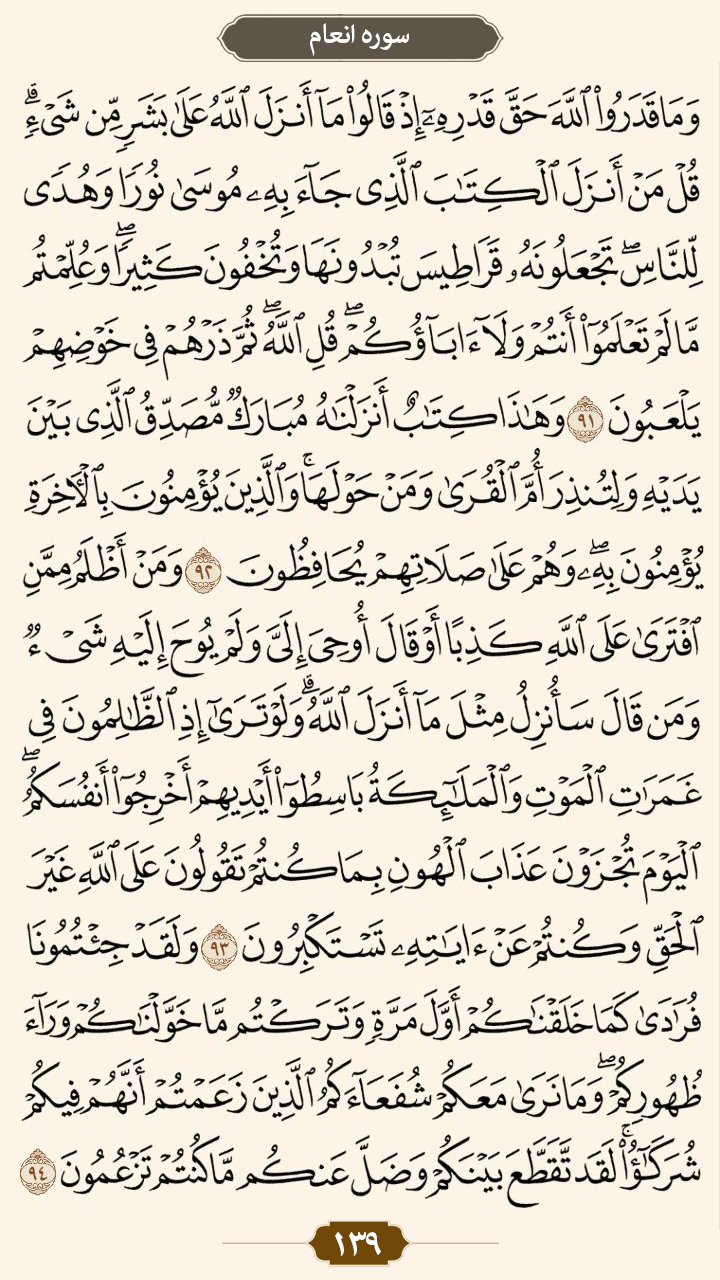 سوره انعام
وَمَا قَدَرُوا۟ ٱللَّهَ حَقَّ قَدْرِهِۦٓ إِذْ قَالُوا۟ مَآ أَنزَلَ ٱللَّهُ عَلَىٰ بَشَرٍ مِّن شَىْءٍ ۗ
قُلْ مَنْ أَنزَلَ ٱلْكِتَـٰبَ ٱلَّذِى جَآءَ بِهِۦ مُوسَىٰ نُورًا وَهُدًى
لِّلنَّاسِ ۖ تَجْعَلُونَهُۥ قَرَاطِيسَ تُبْدُونَهَا وَتُخْفُونَ كَثِيرًا ۖ وَعُلِّمْتُم
مَّا لَمْ تَعْلَمُوٓا۟ أَنتُمْ وَلَآ ءَابَآؤُكُمْ ۖ قُلِ ٱللَّهُ ۖ ثُمَّ ذَرْهُمْ فِى خَوْضِهِمْ
يَلْعَبُونَ ٩١ وَهَـٰذَا كِتَـٰبٌ أَنزَلْنَـٰهُ مُبَارَكٌ مُّصَدِّقُ ٱلَّذِى بَيْنَ
يَدَيْهِ وَلِتُنذِرَ أُمَّ ٱلْقُرَىٰ وَمَنْ حَوْلَهَا ۚ وَٱلَّذِينَ يُؤْمِنُونَ بِٱلْـَٔاخِرَةِ
يُؤْمِنُونَ بِهِۦ ۖ وَهُمْ عَلَىٰ صَلَاتِهِمْ يُحَافِظُونَ ٩٢ وَمَنْ أَظْلَمُ مِمَّنِ
ٱفْتَرَىٰ عَلَى ٱللَّهِ كَذِبًا أَوْ قَالَ أُوحِىَ إِلَىَّ وَلَمْ يُوحَ إِلَيْهِ شَىْءٌ
وَمَن قَالَ سَأُنزِلُ مِثْلَ مَآ أَنزَلَ ٱللَّهُ ۗ وَلَوْ تَرَىٰٓ إِذِ ٱلظَّـٰلِمُونَ فِى
غَمَرَٰتِ ٱلْمَوْتِ وَٱلْمَلَـٰٓئِكَةُ بَاسِطُوٓا۟ أَيْدِيهِمْ أَخْرِجُوٓا۟ أَنفُسَكُمُ ۖ
ٱلْيَوْمَ تُجْزَوْنَ عَذَابَ ٱلْهُونِ بِمَا كُنتُمْ تَقُولُونَ عَلَى ٱللَّهِ غَيْرَ
ٱلْحَقِّ وَكُنتُمْ عَنْ ءَايَـٰتِهِۦ تَسْتَكْبِرُونَ ٩٣ وَلَقَدْ جِئْتُمُونَا
فُرَٰدَىٰ كَمَا خَلَقْنَـٰكُمْ أَوَّلَ مَرَّةٍ وَتَرَكْتُم مَّا خَوَّلْنَـٰكُمْ وَرَآءَ
ظُهُورِكُمْ ۖ وَمَا نَرَىٰ مَعَكُمْ شُفَعَآءَكُمُ ٱلَّذِينَ زَعَمْتُمْ أَنَّهُمْ فِيكُمْ
شُرَكَـٰٓؤُا۟ ۚ لَقَد تَّقَطَّعَ بَيْنَكُمْ وَضَلَّ عَنكُم مَّا كُنتُمْ تَزْعُمُونَ ٩٤
١٣٩